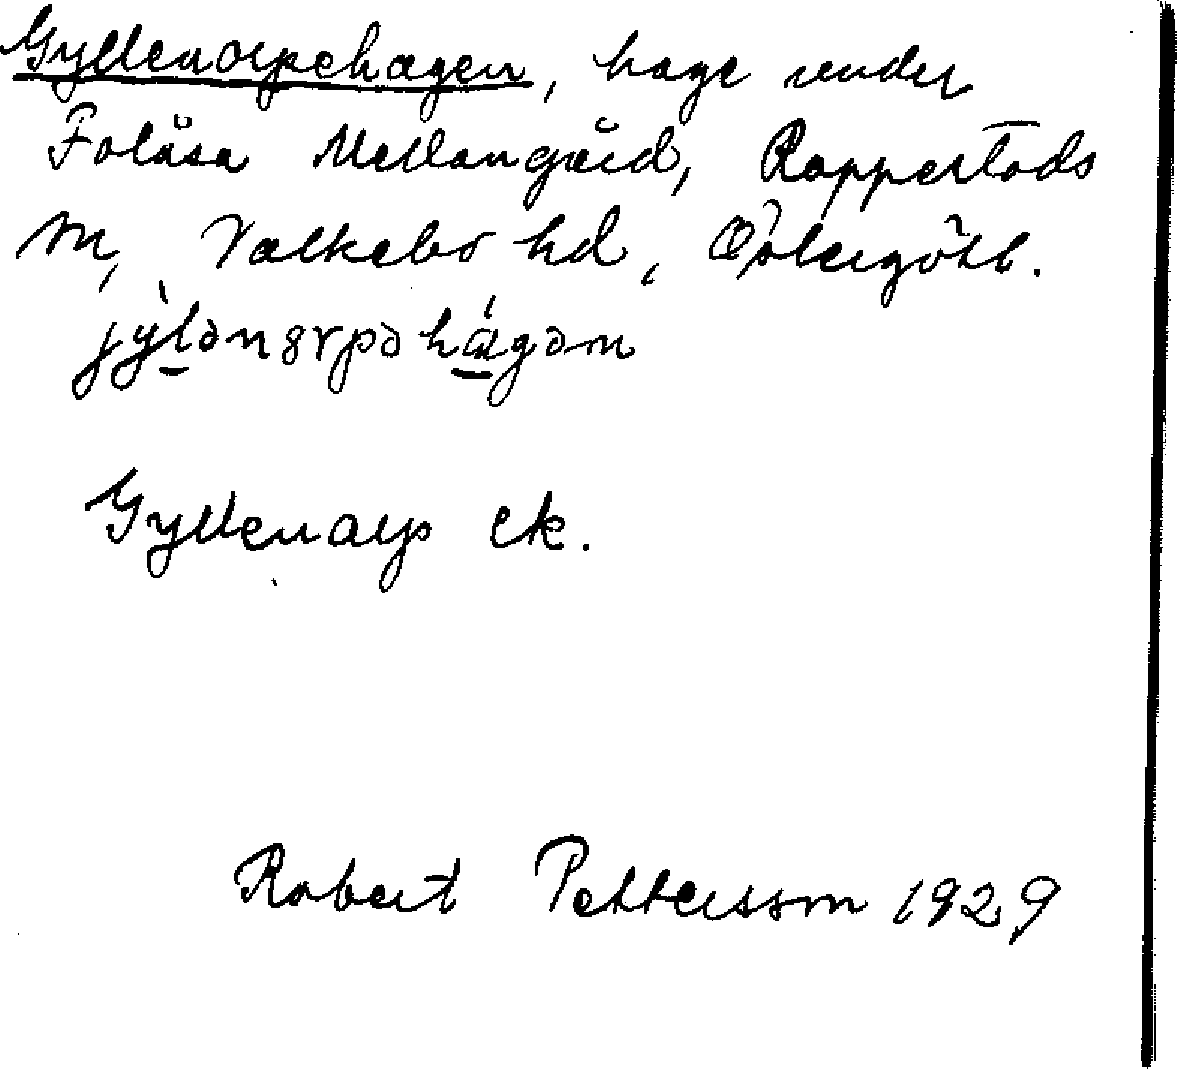 Gyllenorpehagen, hage under
Folåsa Mellangård, Rappestads
sn, Valkebo hd, Östergötl.
jỳlənɞrpəhágəm
Gyllenarp ek.
Robert Pettersson 1929